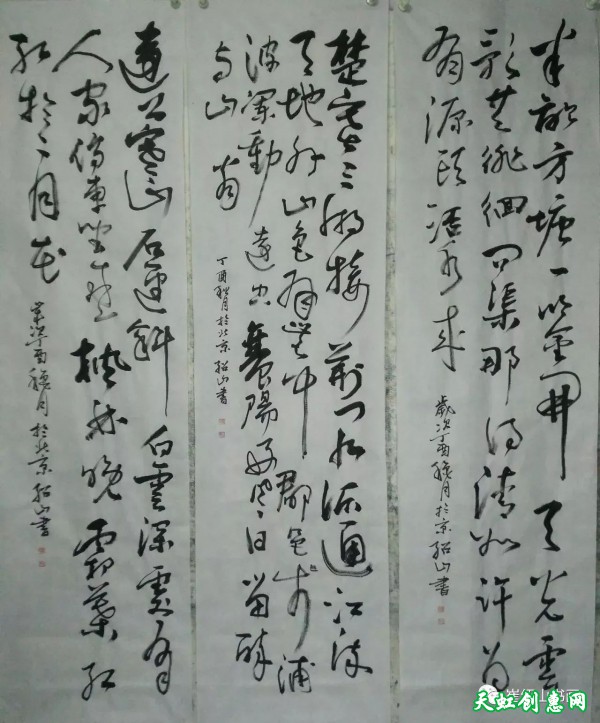 半畝方塘一鑒開天光雲
影共徘徊問渠那得清如許為
有源頭活水來
歲次丁酉穐月於京韶山書
楚塞三湘接荊門九派通江流
天地外山色有無中郡邑浮前浦
波瀾動遠空襄陽好風日留醉
與山翁
丁酉秋月於北京韶山書
遠上寒山石逕斜白雲深處有
人家停車坐愛楓林晚霜葉紅
紅於二月花
歲次丁酉穐月於北京韶山書
天虹创惠网